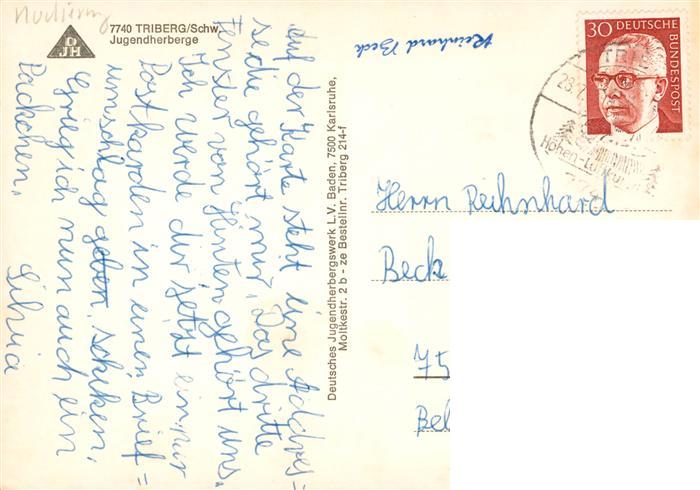 7740 TRIBERG/Schw.
Jugendherberge
DJH
Auf der Karte steht eine Addres=
se die gehört mir. Das dritte
Fenster von Hinten gehört uns.
Ich werde dir jetzt ein nur
Postkarden in einen Brief=
umschlag geben, schiken.
Grieg ich nun auch ein
Päckchen.
Silvia
Deutsches Jugendherbergswerk L.V. Baden, 7500 Karlsruhe,
Moltkestr. 2 b - ze Bestellnr. Triberg 214-f
Reinhard Beck
30 DEUTSCHE
BUNDESPOST
TRIB
28.
Höhen-Luftku
Herrn Reihnhard
Beck
75
Bel